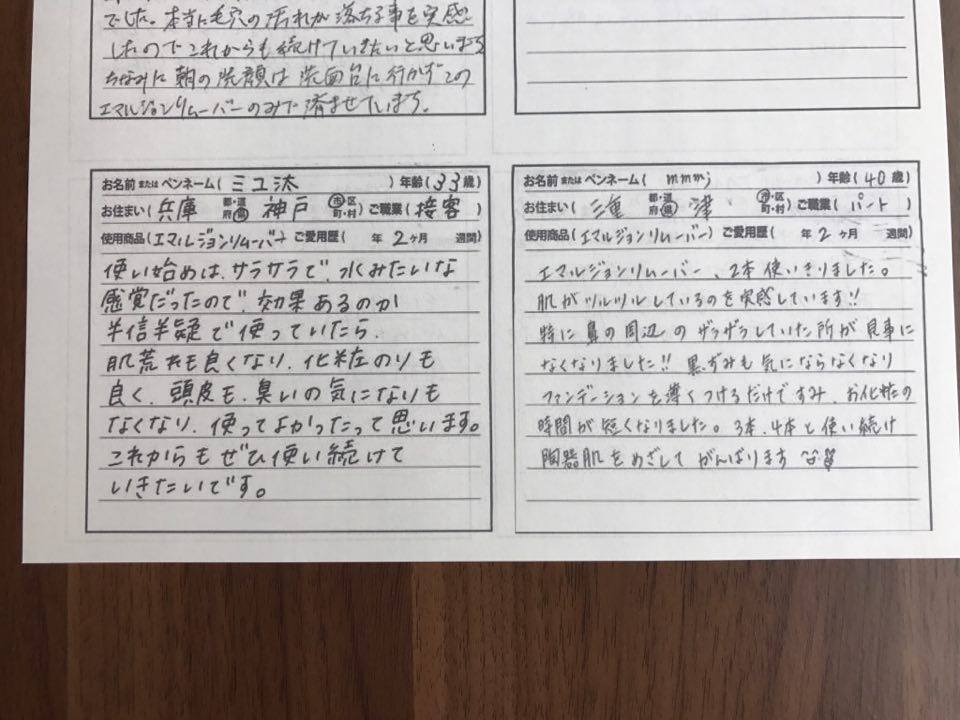 でした。本当に毛穴の汚れが落ちる事を実感
したのでこれからも続けていきたいと思います
ちなみに朝の洗顔は洗面台に行かずこの
エマルジョンリムーバーのみで済ませています。
お名前またはペンネーム(ミユ汰)年齢(33歳)
お住まい(兵庫 都・道府・県 神戸 市・区町・村)ご職業(接客)
使用商品(エマルジョンリムーバー)ご愛用歴( 年 2ヶ月 週間)
使い始めは、サラサラで、水みたいな
感覚だったので、効果あるのか
半信半疑で使っていたら、
肌荒れも良くなり、化粧のりも
良く、頭皮も、臭いの気になりも
なくなり、使ってよかったって思います。
これからもぜひ使い続けて
いきたいです。
お名前またはペンネーム(mmmj)年齢(40歳)
お住まい(三重 都・道府・県 津 市・区町・村)ご職業(パート)
使用商品(エマルジョンリムーバー)ご愛用歴( 年 2ヶ月 週間)
エマルジョンリムーバー、2本使いきりました。
肌がツルツルしているのを実感しています!!
特に鼻の周辺のザラザラしていた所が見事に
なくなりました!! 黒ずみも気にならなくなり
ファンデーションを薄くつけるだけですみ、お化粧の
時間が短くなりました。3本、4本と使い続け
陶器肌をめざしてがんばります